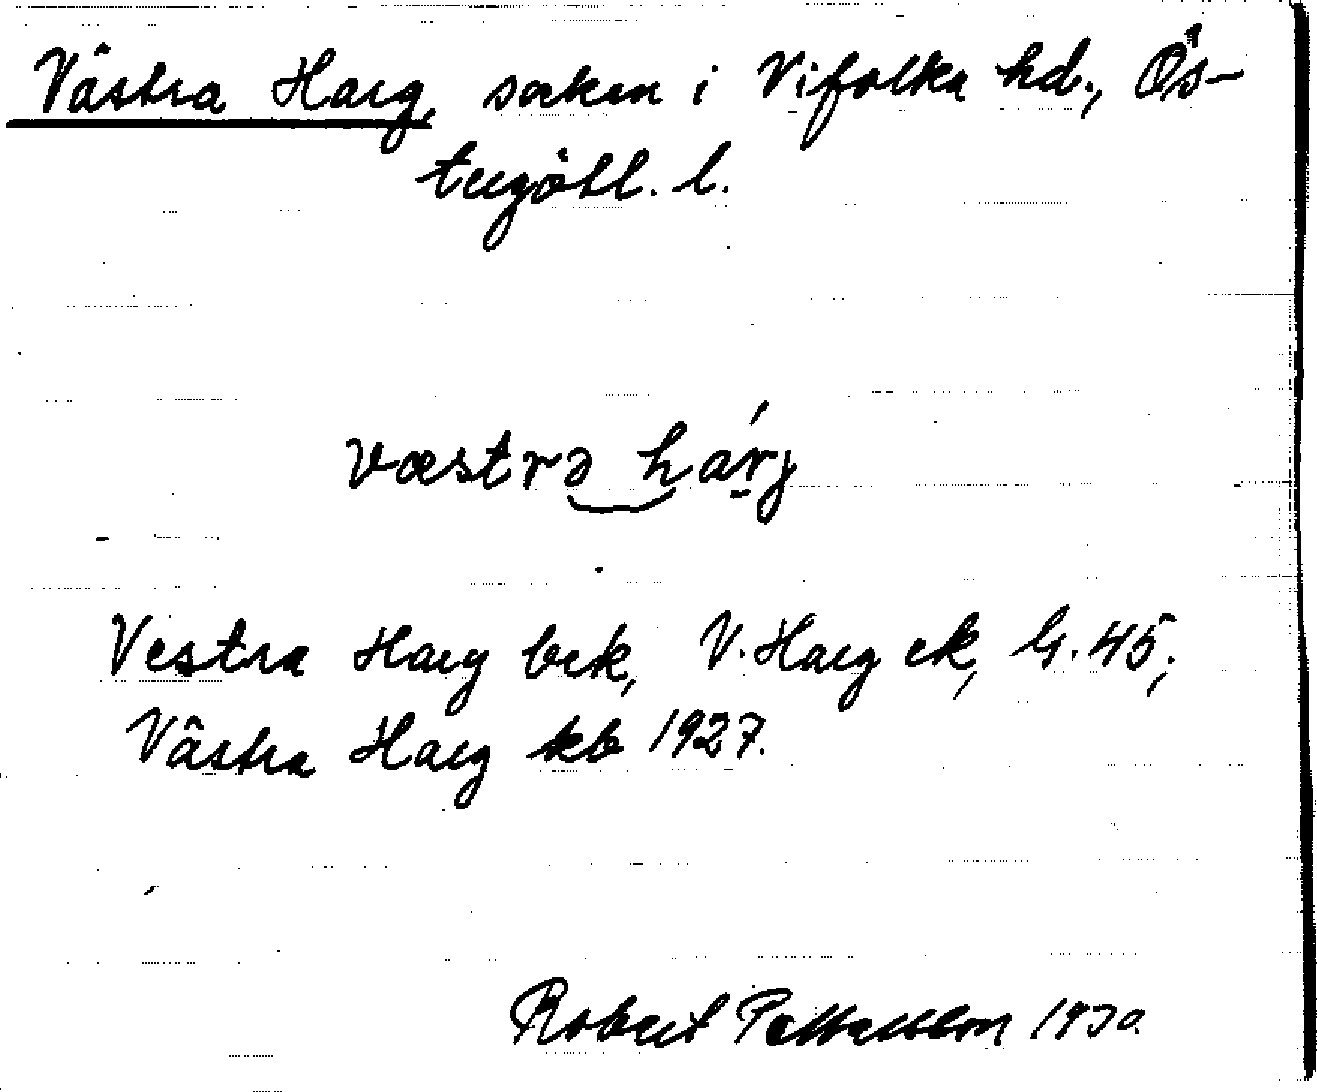 Västra Harg, socken i Vifolka hd., Ös-
tergötl. l.
væstrə hárj
Vestra Harg bek, V. Harg ek, G. 45;
Västra Harg kb 1927.
Robert Pettersson 1930.